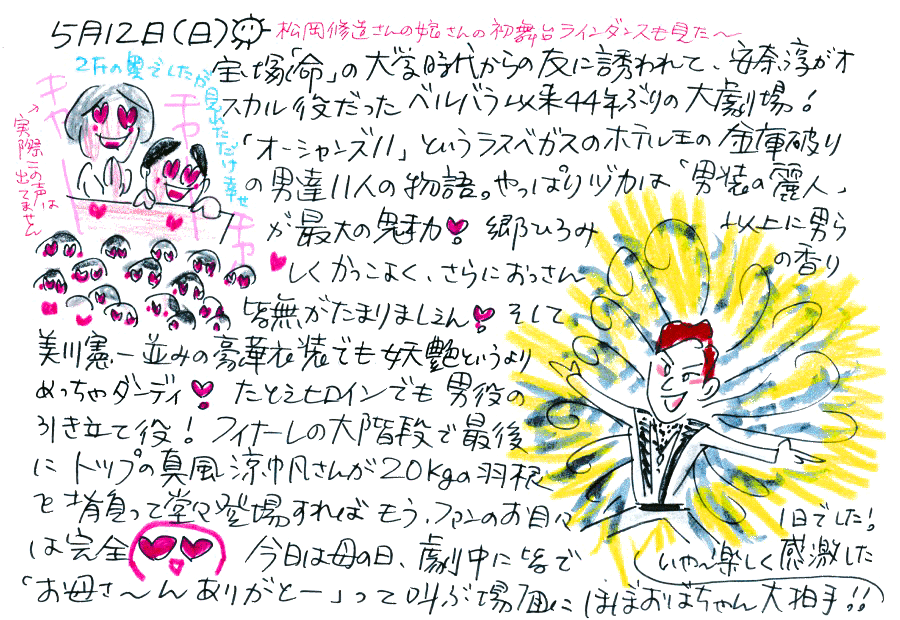 5月12日(日)
松岡修造さんの娘さんの初舞台ラインダンスも見た〜
2Fの奥でしたが見れただけ幸せ
キャー
チャー
キャー
→実際この声は出てません
宝塚「命」の大学時代からの友に誘われて、安奈淳がオ
スカル役だったベルバラ以来44年ぶりの大劇場!
「オーシャンズ11」というラスベガスのホテル王の金庫破り
の男達11人の物語。やっぱりヅカは「男装の麗人」
が最大の魅力 郷ひろみ以上に男ら
しくかっこよく、さらにおっさんの香り
皆無がたまりましぇん そして
美川憲一並みの豪華衣装でも妖艶というより
めっちゃダンディ たとえヒロインでも男役の
引き立て役!フィナーレの大階段で最後
にトップの真風涼帆さんが20kgの羽根
を背負って堂々登場すればもう、ファンのお目々
は完全 今日は母の日、劇中に皆で
「お母さ〜んありがとー」って叫ぶ場面にほぼおばちゃん大拍手!!
いや〜楽しく感激した
1日でした!